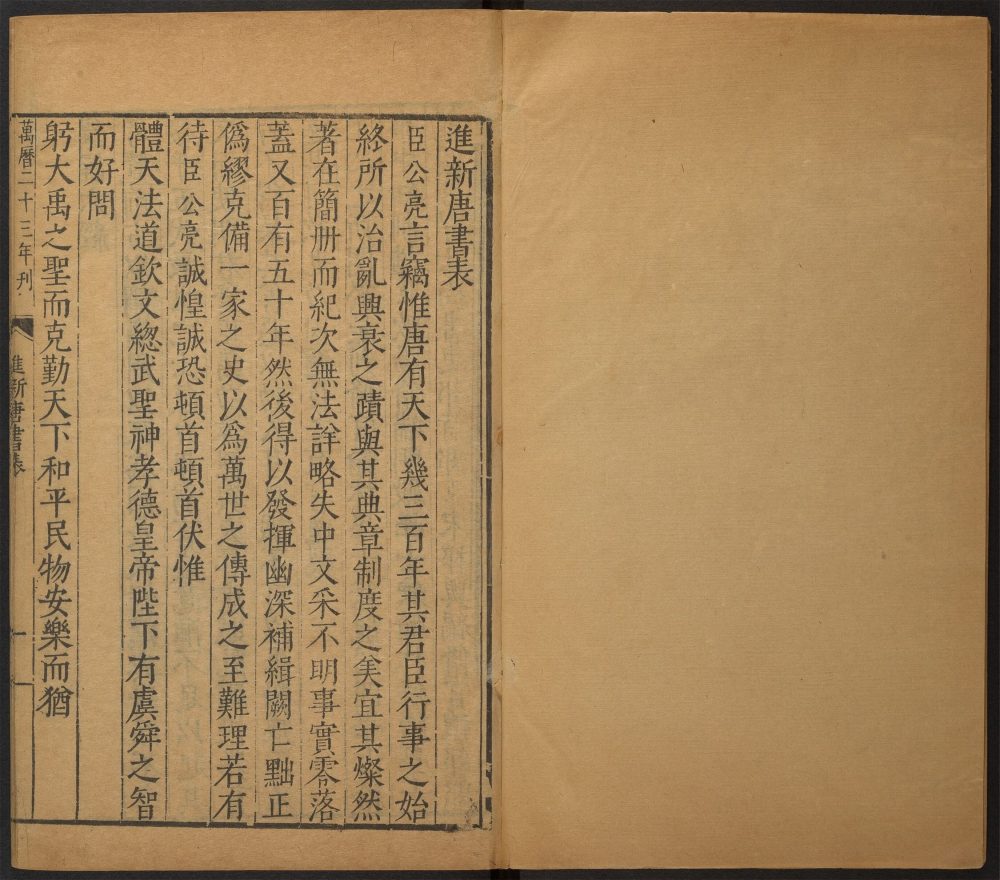 進新唐書表
臣公亮言竊惟唐有天下幾三百年其君臣行事之始
終所以治亂興衰之蹟與其典章制度之美宜其燦然
著在簡册而紀次無法詳略失中文采不明事實零落
蓋又百有五十年然後得以發揮幽深補緝闕亡黜正
僞繆克備一家之史以爲萬世之傳成之至難理若有
待臣公亮誠惶誠恐頓首頓首伏惟
體天法道欽文緫武聖神孝德皇帝陛下有虞舜之智
而好問
躬大禹之聖而克勤天下和平民物安樂而猶
萬曆二十三年刊
進新唐書表
一